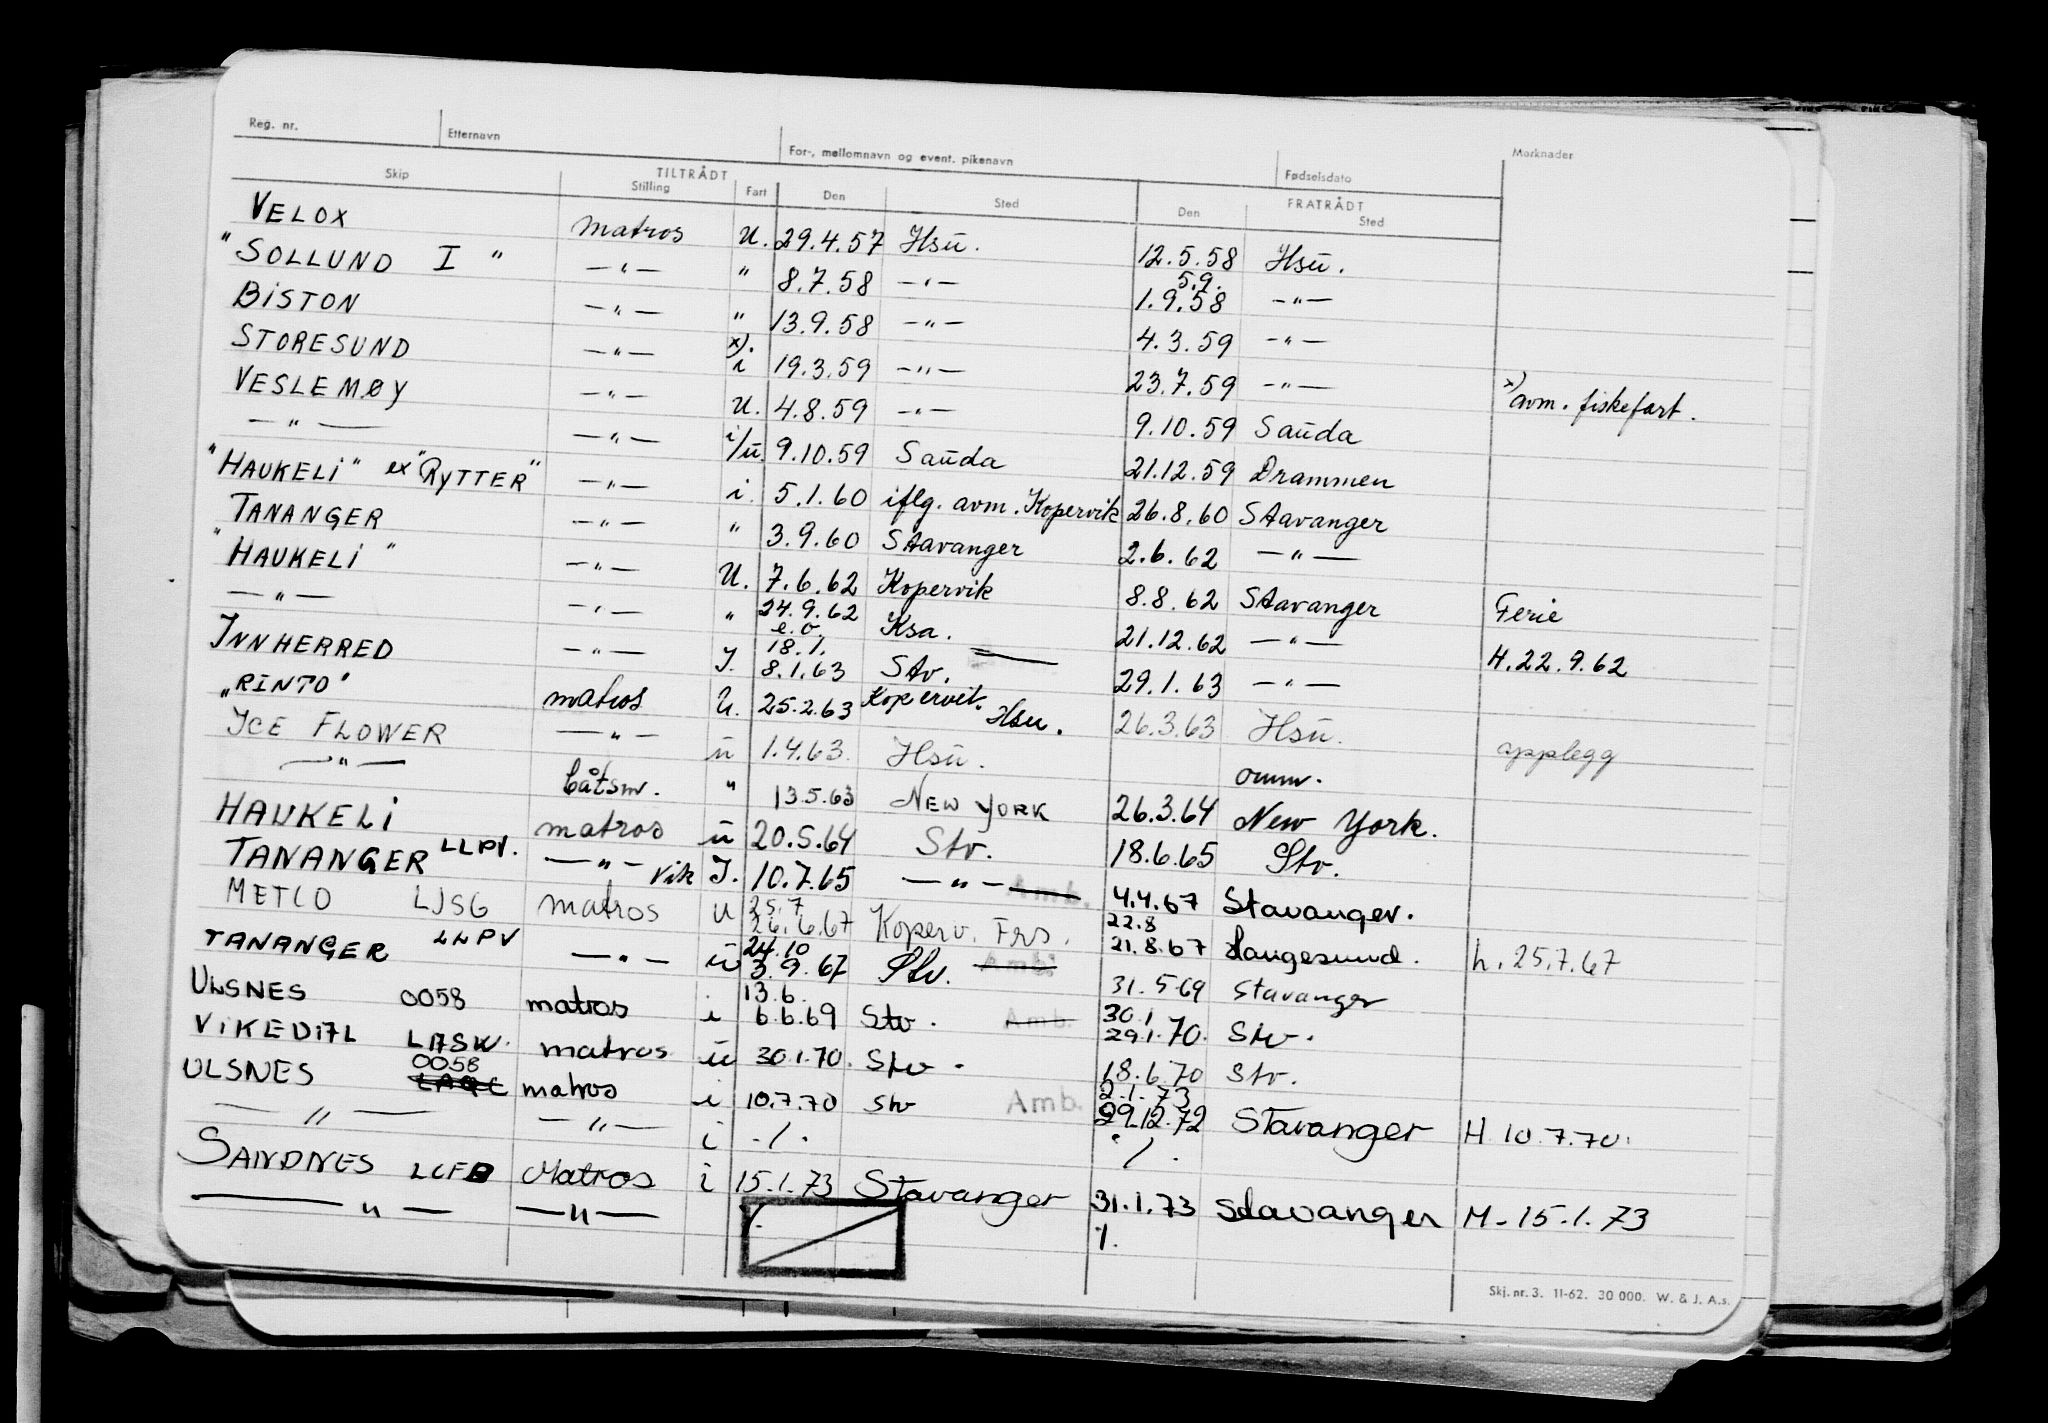 Reg. nr. Etternavn For-, mellomnavn og event. pikenavn Fødselsdato Merknader
TILTRÅDT FRATRÅDT
Skip Stilling Fart Den Sted Den Sted
VELOX matros U. 29.4.57 Hsū. 12.5.58 Hsū.
"SOLLUND I " —"— " 8.7.58 —"— 5.9. 1.9.58 —"—
BISTON —"— " 13.9.58 —"— 4.3.59 —"—
STORESUND —"— x). i 19.3.59 —"— 23.7.59 —"— x) avm. fiskefart.
VESLEMØY —"— U. 4.8.59 —"— 9.10.59 Saūda
—"— —"— i/ū. 9.10.59 Saūda 21.12.59 Drammen
"HAUKELI" ex "RYTTER" —"— i. 5.1.60 iflg. avm. Kopervik 26.8.60 Stavanger
TANANGER —"— " 3.9.60 Stavanger 2.6.62 —"—
"HAUKELI" —"— U. 7.6.62 Kopervik 8.8.62 Stavanger Ferie
—"— —"— " 24.9.62 e.o. Ksa. 21.12.62 —"— H.22.9.62
INNHERRED —"— I. 18.1. 8.1.63 Stv. 29.1.63 —"—
"RINTO" matros U. 25.2.63 Kopervik. Hsu. 26.3.63 Hsū. opplegg
ICE FLOWER —"— ū 1.4.63 Hsū. omm.
—"— båtsm. " 13.5.63 NEW YORK 26.3.64 New York.
HAUKELI matros ū 20.5.64 Stv. 18.6.65 Stv.
TANANGER LLPV. —"— Vik I. 10.7.65 —"— Amb. 4.4.67 Stavanger.
METCO LJSG matros U 25.7 26.6.67 Koperv. Frs. 22.8 21.8.67 Langesund. h.25.7.67
TANANGER LLPV —"— ū 24.10 3.9.67 Stv. Amb. 31.5.69 Stavanger
ULSNES 0058 matros i 13.6. 6.6.69 Stv. Amb. 30.1 29.1.70. Stv.
VIKEDAL LASW. matros ū 30.1.70. Stv. 18.6.70 Stv.
ULSNES 0058 LAQC matros i 10.7.70 Stv Amb. 2.1.73 29.12.72 Stavanger H 10.7.70.
—"— —"— i ./. ./.
SANDNES LCFB Matros i 15.1.73 Stavanger 31.1.73 Stavanger M-15.1.73
—"— —"— /.
Skj. nr. 3. 11-62. 30 000. W. & J. A.s.